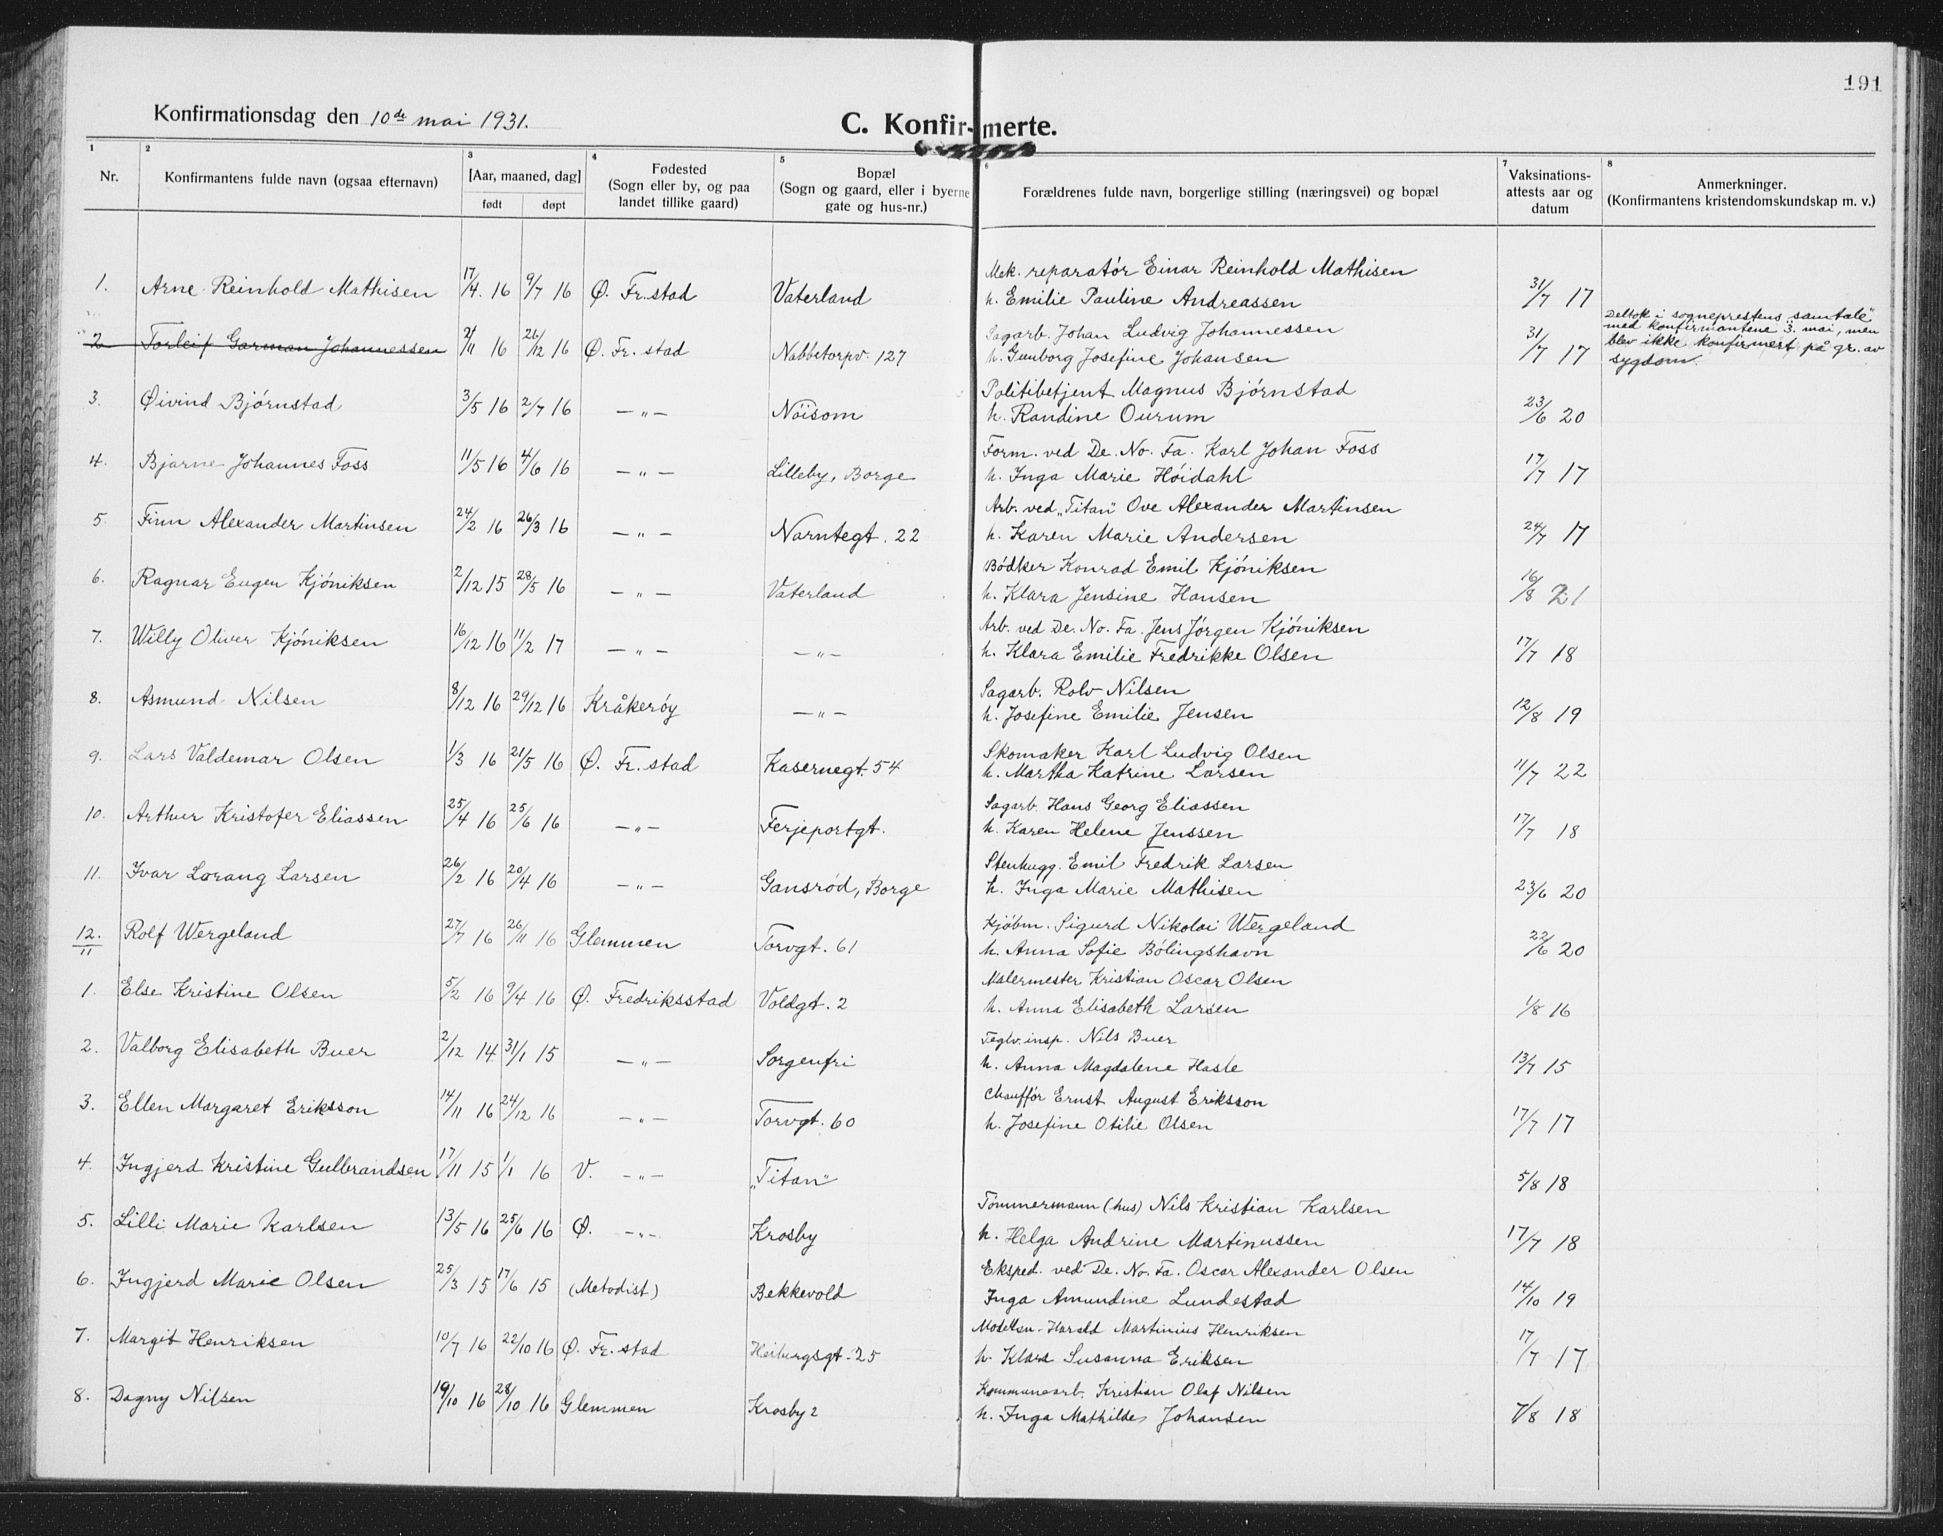 191
Konfirmationsdag den 10de mai 1931.
C. Konfirmerte.
1 2 3 4 5 6 7 8
Nr. Konfirmantens fulde navn (ogsaa efternavn) [Aar, maaned, dag] født døpt Fødested (Sogn eller by, og paa landet tillike gaard) Bopæl (Sogn og gaard, eller i byerne gate og hus-nr.) Forældrenes fulde navn, borgerlige stilling (næringsvei) og bopæl Vaksinations-attests aar og datum Anmerkninger. (Konfirmantens kristendomskundskap m. v.)
Mek. reparatör Einar Reinhold Mathisen
1. Arne Reinhold Mathisen 17/4 16 9/7 16 Ø. Fr.stad Vaterland h. Emilie Pauline Andreassen 31/7 17
Sagarb. Johan Ludvig Johannessen
2 Torleif Garman Johannessen 21/11 16 26/12 16 Ø. Fr.stad Nabbetorpv. 127 h. Gunborg Josefine Johansen 31/7 17
Deltok i sogneprestens "samtale"
med konfirmantene 3. mai, men
blev ikke konfirmert på gr. av
sygdom.
Politibetjent Magnus Björnstad
3. Øivind Björnstad 3/5 16 2/7 16 —"— Nöisom h. Randine Ourum 23/6 20
Form. ved De. No. Fa. Karl Johan Foss
4. Bjarne Johannes Foss 11/5 16 4/6 16 —"— Lilleby, Borge h. Inga Marie Höidahl 17/7 17
Arb. ved „Titan" Ove Alexander Martinsen
5 Finn Alexander Martinsen 24/2 16 26/3 16 —"— Narntegt. 22 h. Karen Marie Andersen 24/7 17
Bödker Konrad Emil Kjöniksen
6. Ragnar Eugen Kjöniksen 2/12 15 28/5 16 —"— Vaterland h. Klara Jensine Hansen 16/8 21
Arb. ved De. No. Fa. Jens Jörgen Kjöniksen
7. Willy Oliver Kjöniksen 16/12 16 11/2 17 —"— —"— h. Klara Emilie Fredrikke Olsen 17/7 18
Sagarb. Rolv Nilsen
8. Asmund Nilsen 8/12 16 29/12 16 Kråkeröy —"— h. Josefine Emilie Jensen 12/8 19
Skomaker Karl Ludvig Olsen
9. Lars Valdemar Olsen 1/3 16 21/5 16 Ø. Fr.stad Kasernegt. 54 h. Martha Katrine Larsen 11/7 22
Sagarb. Hans Georg Eliassen
10. Arthur Kristofer Eliassen 25/4 16 25/6 16 —"— Ferjeportgt. h. Karen Helene Jenssen 17/7 18
Stenhugg. Emil Fredrik Larsen
11. Ivar Lorang Larsen 26/2 16 20/4 16 —"— Gansröd, Borge h. Inga Marie Mathisen 23/6 20
Kjöbm. Sigurd Nikolai Wergeland
12./11 Rolf Wergeland 27/7 16 26/11 16 Glemmen Torvgt. 61 h. Anna Sofie Bölingshavn 22/6 20
Malermester Kristian Oscar Olsen
1. Else Kristine Olsen 5/2 16 9/4 16 Ø. Fredriksstad Voldgt. 2 h. Anna Elisabeth Larsen 1/8 16
Teglv.insp. Nils Buer
2. Valborg Elisabeth Buer 2/12 14 31/1 15 —"— Sorgenfri h. Anna Magdalene Hasle 13/7 15
Chaufför Ernst August Eriksson
3. Ellen Margaret Eriksson 14/11 16 24/12 16 —"— Torvgt. 60 h. Josefine Otilie Olsen 17/7 17
4. Ingjerd Kristine Gulbrandsen 17/11 15 1/1 16 V. —"— „Titan" 5/8 18
Tömmermann (hus) Nils Kristian Karlsen
5. Lilli Marie Karlsen 13/5 16 25/6 16 Ø. —"— Krosby h. Helga Andrine Martinussen 17/7 18
Eksped. ved De. No. Fa. Oscar Alexander Olsen
6. Ingjerd Marie Olsen 25/3 15 17/6 15 (Metodist) Bekkevold Inga Amundine Lundestad 14/10 19
Modellsn. Harald Martinius Henriksen
7. Margit Henriksen 10/7 16 22/10 16 Ø. Fr.stad Heibergsgt. 25 h. Klara Susanna Eriksen 17/7 17
Kommunearb. Kristian Olaf Nilsen
8. Dagny Nilsen 19/10 16 28/10 16 Glemmen Krosby 2 h. Inga Mathilde Johansen 7/8 18